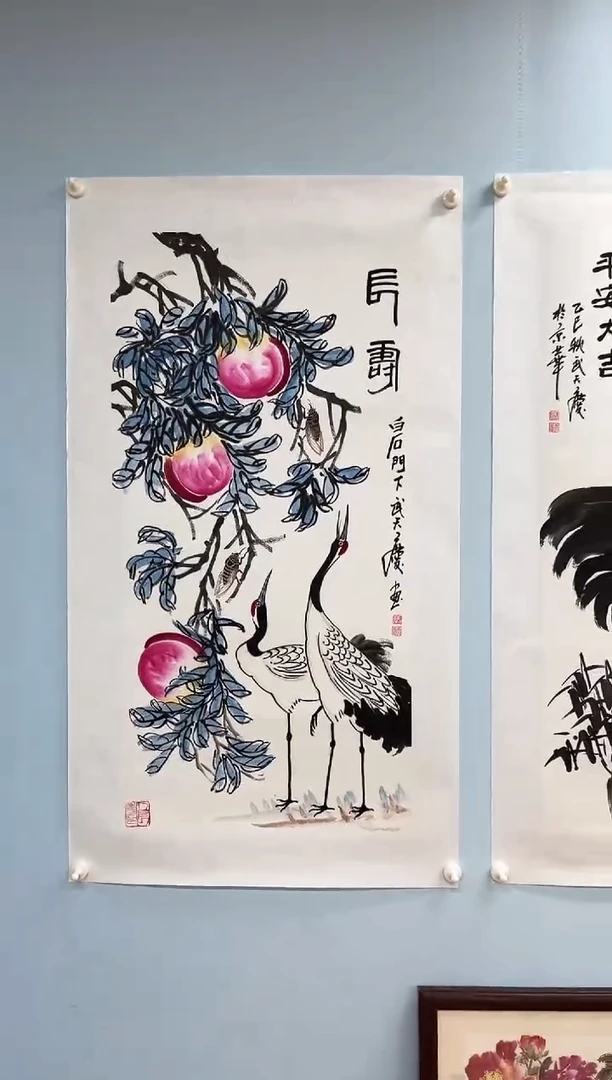 長壽
白石門下武天慶画
平安大吉
乙巳秋武天慶
於京華